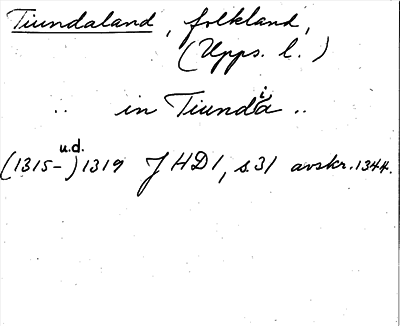 Tiundaland, folkland,
(Upps. l.)
.. in Tiundia ..
u.d.
(1315-)1319 JHD1, s.31 avskr. 1344.